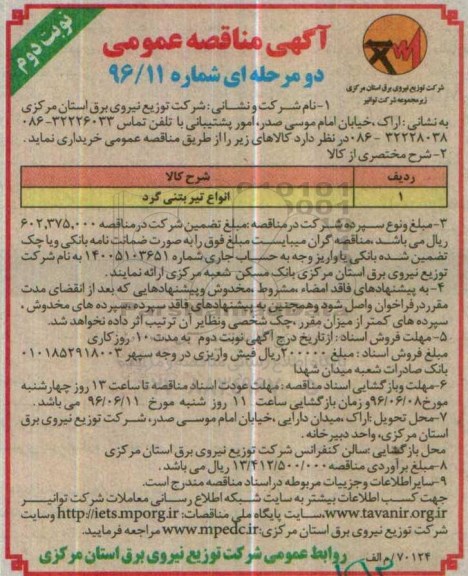 نوبت دوم
آگهی مناقصه عمومی
دو مرحله ای شماره ۹۶/۱۱
شرکت توزیع نیروی برق استان مرکزی
زیرمجموعه شرکت توانیر
۱-نام شرکت و نشانی: شرکت توزیع نیروی برق استان مرکزی
به نشانی: اراک، خیابان امام موسی صدر، امور پشتیبانی با تلفن تماس ۳۲۲۲۶۰۳۳-۰۸۶
۳۲۲۲۸۰۳۸-۰۸۶ در نظر دارد کالاهای زیر را از طریق مناقصه عمومی خریداری نماید.
۲-شرح مختصری از کالا
ردیف شرح کالا
۱ انواع تیر بتنی گرد
۳-مبلغ ونوع سپرده شرکت در مناقصه: مبلغ تضمین شرکت در مناقصه ۶۰۲,۳۷۵,۰۰۰
ریال می باشد، مناقصه گران میبایست مبلغ فوق را به صورت ضمانت نامه بانکی ویا چک
تضمین شده بانکی یا واریز وجه به حساب جاری شماره ۱۴۰۰۵۱۰۳۶۵۱ به نام شرکت
توزیع نیروی برق استان مرکزی بانک مسکن شعبه مرکزی ارائه نمایند.
۴- به پیشنهادهای فاقد امضاء، مشروط، مخدوش وپیشنهادهایی که بعد از انقضای مدت
مقرر در فراخوان واصل شود وهمچنین به پیشنهادهای فاقد سپرده، سپرده های مخدوش،
سپرده های کمتر از میزان مقرر، چک شخصی ونظایر آن ترتیب اثر داده نخواهد شد.
۵- مهلت فروش اسناد: از تاریخ درج آگهی نوبت دوم به مدت ۱۰ روز کاری
مبلغ فروش اسناد: مبلغ ۲۰۰۰۰۰ ریال فیش واریزی در وجه سپهر ۰۱۰۱۸۵۲۹۱۸۰۰۳
بانک صادرات شعبه میدان شهدا
۶-مهلت وبازگشایی اسناد مناقصه: مهلت عودت اسناد مناقصه تا ساعت ۱۳ روز چهارشنبه
مورخ ۹۶/۰۶/۰۸ و زمان بازگشایی ساعت ۱۱ روز شنبه مورخ ۹۶/۰۶/۱۱ می باشد.
۷-محل تحویل: اراک، میدان دارایی، خیابان امام موسی صدر، شرکت توزیع نیروی برق
استان مرکزی، واحد دبیرخانه.
محل بازگشایی: سالن کنفرانس شرکت توزیع نیروی برق استان مرکزی
۸-مبلغ برآوردی مناقصه ۱۳/۴۱۲/۵۰۰/۰۰۰ ریال می باشد.
۹-سایر اطلاعات وجزییات مربوطه در اسناد مناقصه مندرج است.
جهت کسب اطلاعات بیشتر به سایت شبکه اطلاع رسانی معاملات شرکت توانیر
www.tavanir.org.ir، سایت پایگاه ملی مناقصات: http://iets.mporg.ir وسایت
شرکت توزیع نیروی برق استان مرکزی: www.mpedc.ir مراجعه فرمایید.
۷۰۱۲۴/م الف روابط عمومی شرکت توزیع نیروی برق استان مرکزی